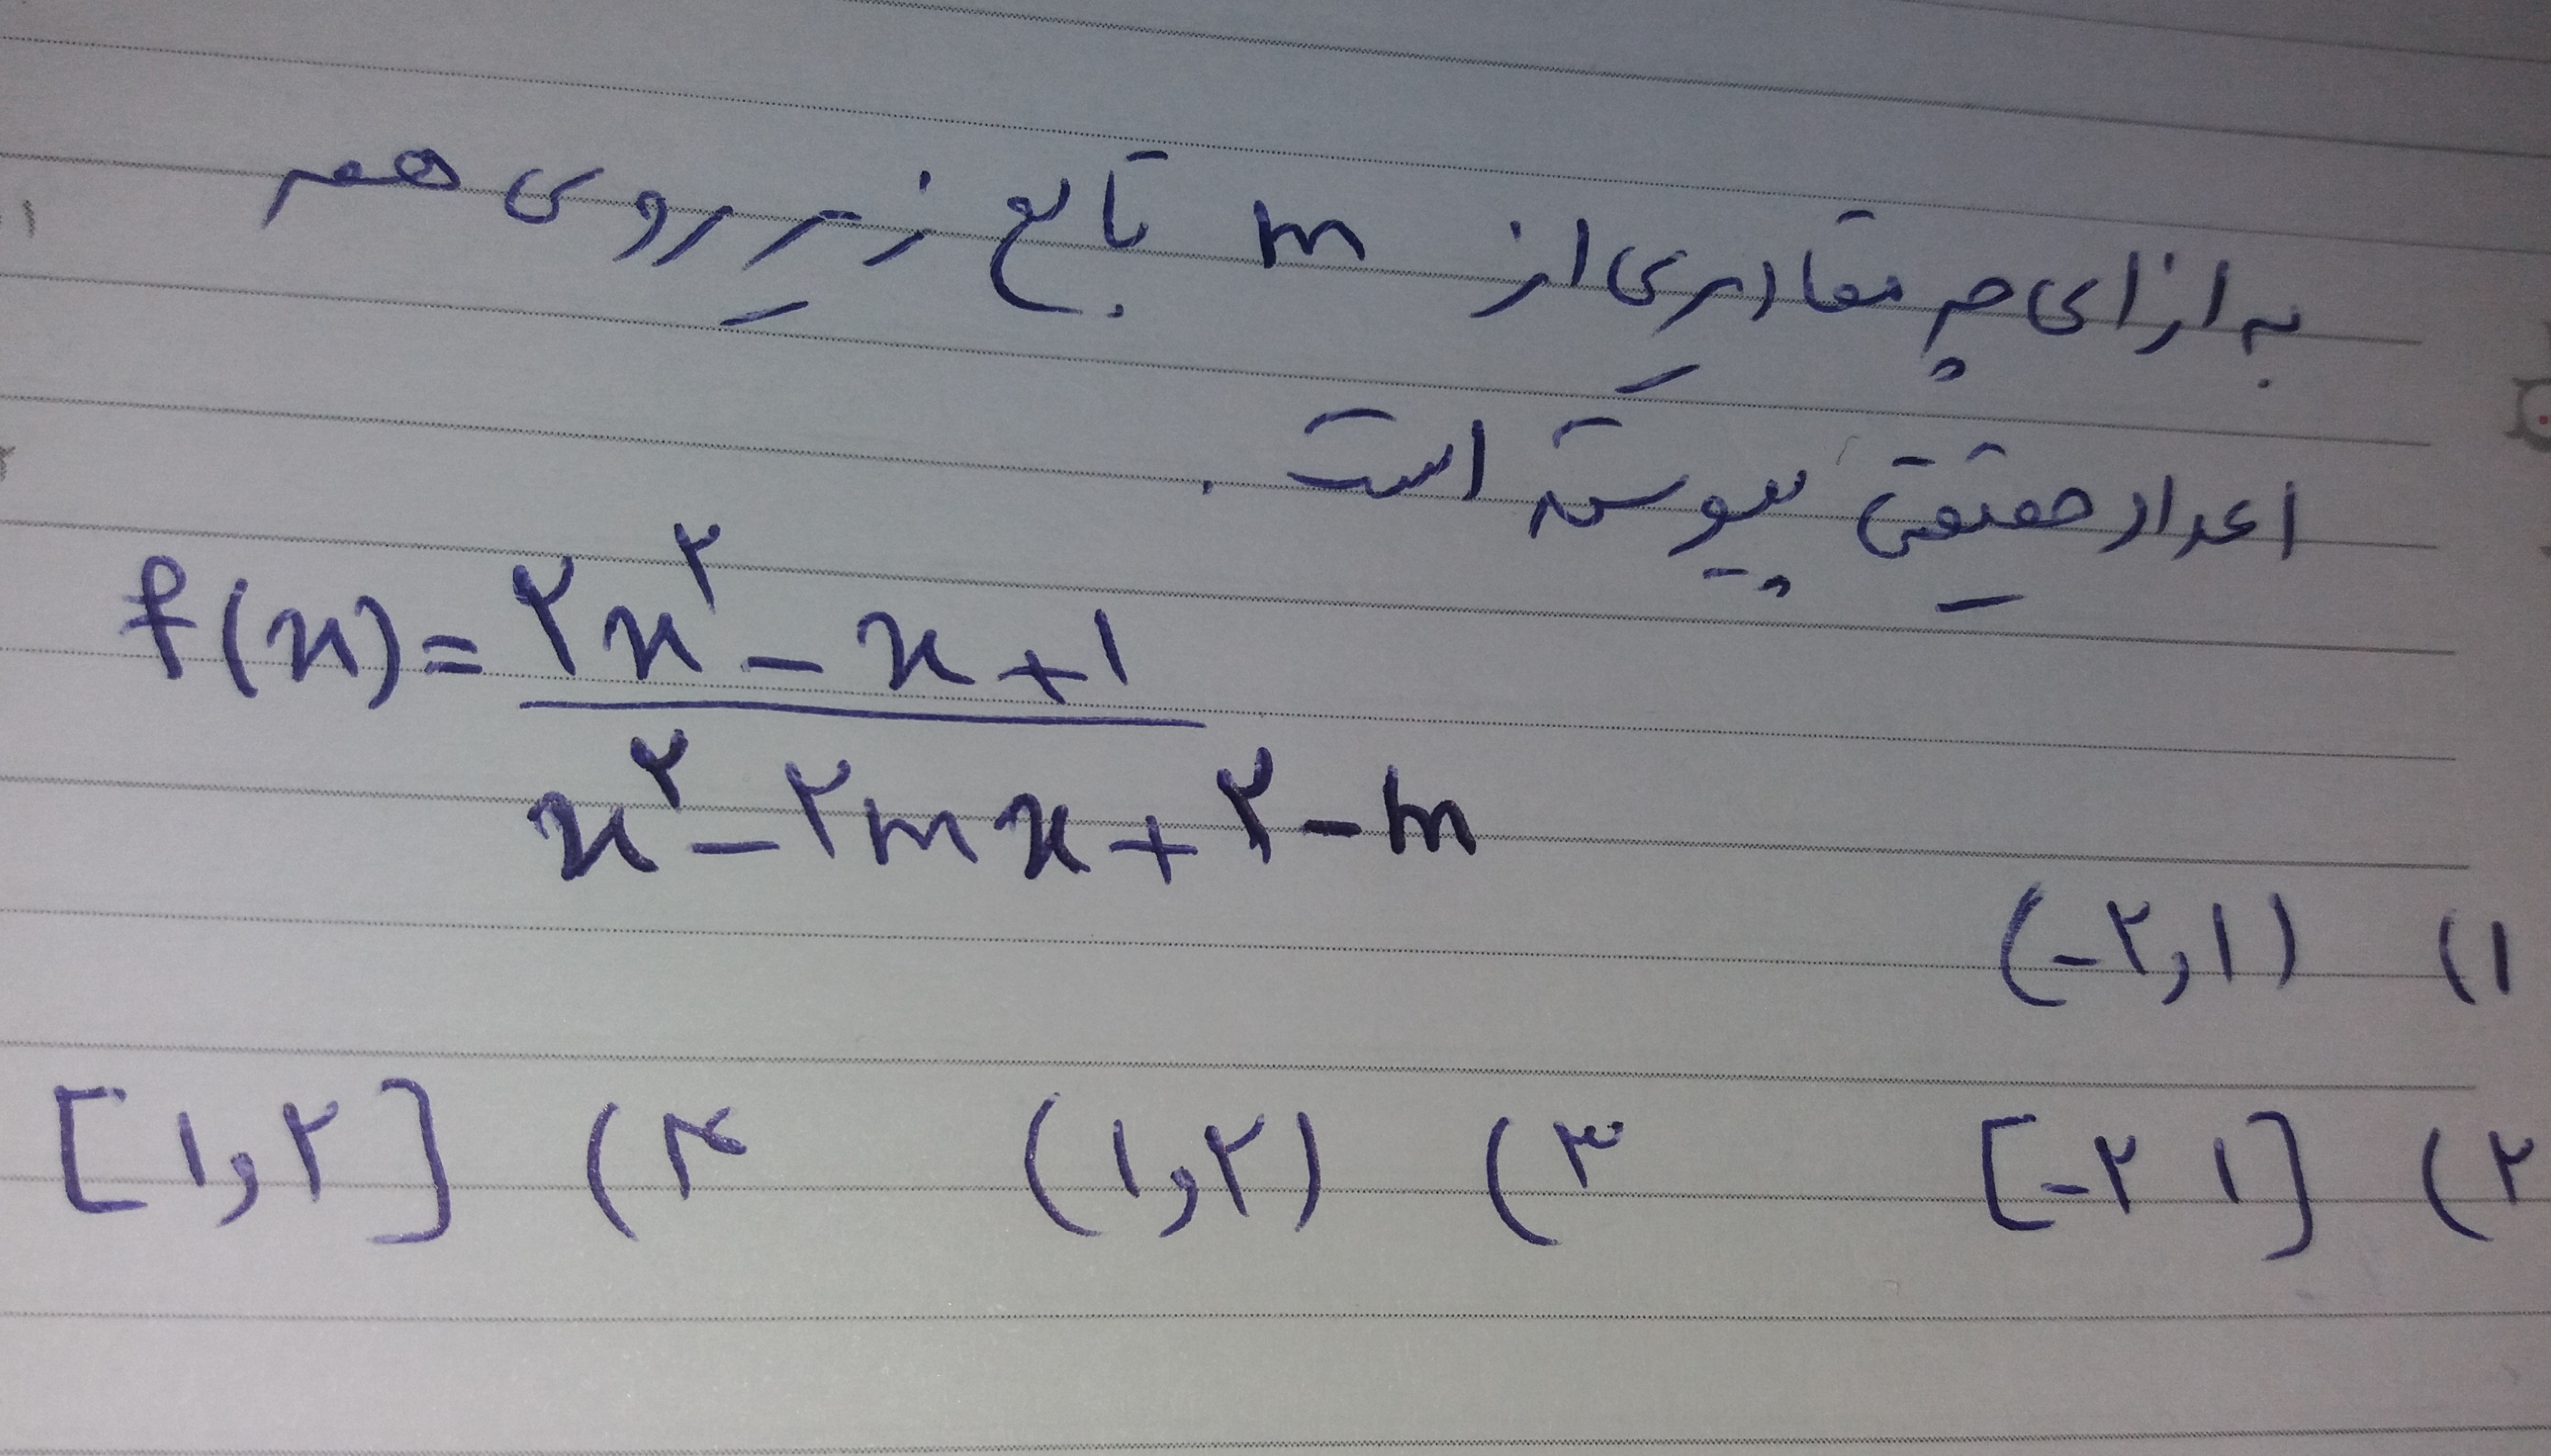 به ازای چه مقادیری از m تابع زیر روی همه
اعداد حقیقی پیوسته است .
f(x) = (۲x^۲ - x + ۱) / (x^۲ - ۲mx + ۲ - m)
۱) (-۲,۱)
۲) [-۲ ۱] ۳) (۱,۲) ۴) [۱,۲]